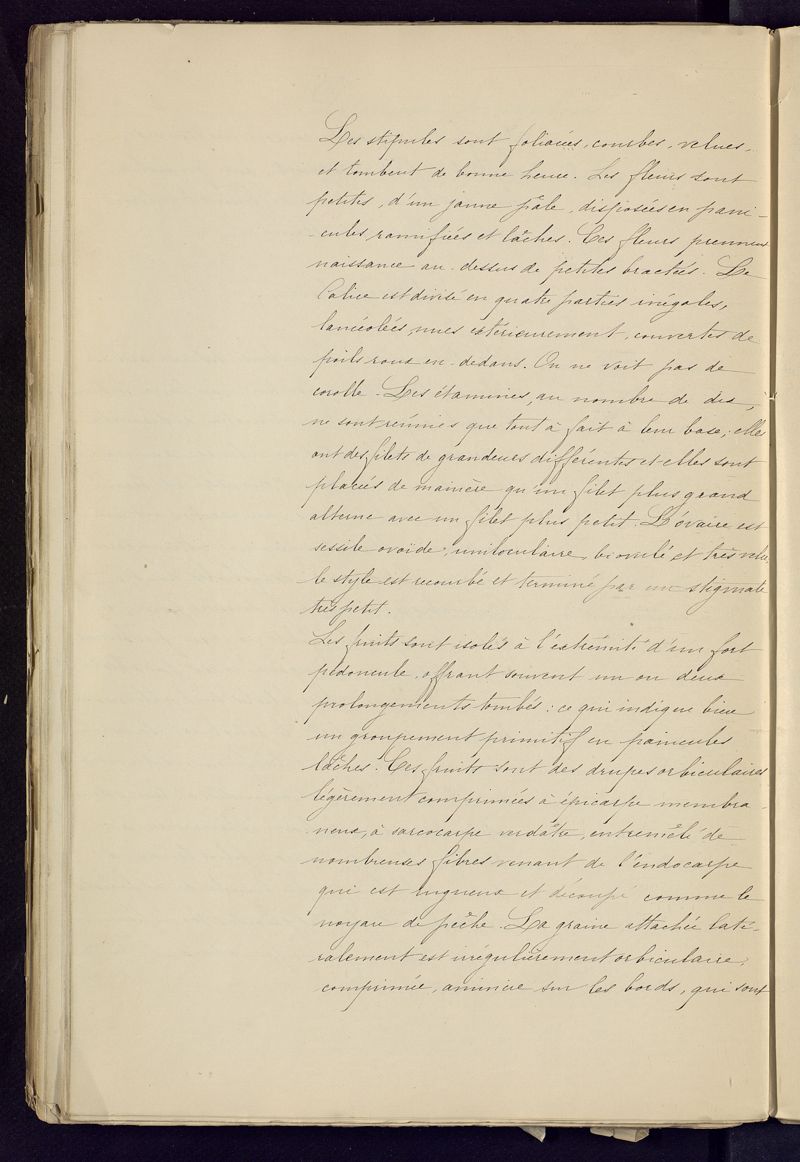 Les stipules sont foliacées, courbes, velues,
et tombent de bonne heure. Les fleurs sont
petites, d'un jaune pâle, disposées en pani-
-cules ramifiées et lâches. Ces fleurs prennent
naissance au-dessus de petites bractées. Le
Calice est divisé en quatre parties inégales,
lancéolées, nues extérieurement, couvertes de
poils roux en-dedans. On ne voit pas de
corolle. Les étamines, au nombre de dix,
ne sont réunies que tout à fait à leur base, elles
ont des filets de grandeurs différentes et elles sont
placées de manière qu'un filet plus grand
alterne avec un filet plus petit. L'ovaire est
sessile ovoïde, uniloculaire, biovulé et très velu,
le style est recourbé et terminé par un stigmate
très petit.
Les fruits sont isolés à l'extrémité d'un fort
pédoncule, offrant souvent un ou deux
prolongements tombés : ce qui indique bien
un groupement primitif en panicules
lâches. Ces fruits sont des drupes orbiculaires
légèrement comprimées à épicarpe membra-
neux, à sarcocarpe verdâtre, entremêlé de
nombreuses fibres venant de l'endocarpe
qui est rugueux et découpé comme le
noyau de pêche. La graine attachée laté-
ralement est irrégulièrement orbiculaire,
comprimée, amincie sur les bords, qui sont